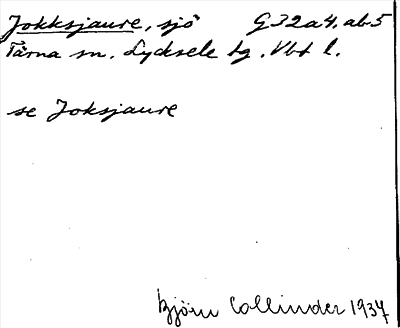 Jokksjaure, sjö G32a4.ab5
Tärna sn. Lycksele lg. Vbt l.
se Joksjaure
Björn Collinder 1937